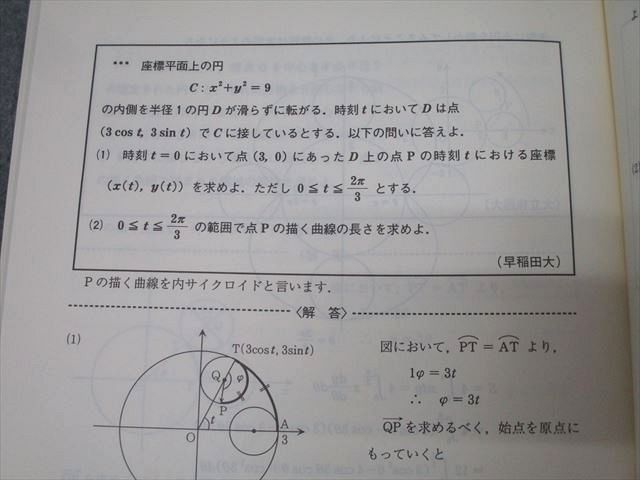 *** 座標平面上の円
C : x²+y²=9
の内側を半径1の円Dが滑らずに転がる. 時刻tにおいてDは点
(3 cos t, 3 sin t) でCに接しているとする. 以下の問いに答えよ.
(1) 時刻t=0において点(3, 0)にあったD上の点Pの時刻tにおける座標
(x(t), y(t))を求めよ. ただし 0≦t≦2π/3 とする.
(2) 0≦t≦2π/3 の範囲で点Pの描く曲線の長さを求めよ.
(早稲田大)
Pの描く曲線を内サイクロイドと言います.
〈解 答〉
(1)
T(3cost, 3sint)
Q φ
P
t
O
A
3
図において, PT = AT より,
1φ=3t
∴ φ=3t
QPを求めるべく, 始点を原点に
もっていくと